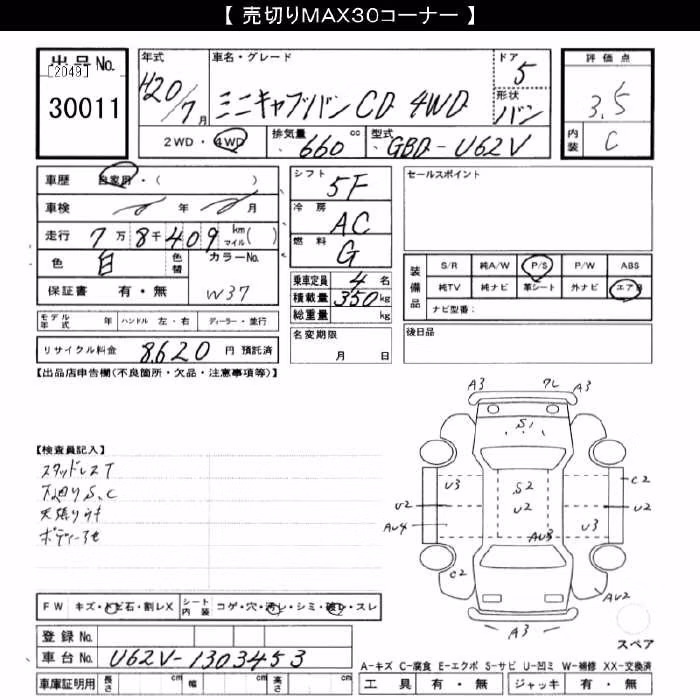 【 売切りMAX30コーナー 】
出品No.
[2049]
30011
年式
H20/7月
車名・グレード
ミニキャブバン CD 4WD
ドア
5
形状
バン
2WD・4WD
排気量
660 cc
型式
GBD-U62V
評価点
3.5
内装
C
車歴 自家用・( )
車検 年 月
走行 7万8千409 km マイル( )
色 白
色替
カラーNo.
W37
保証書 有・無
モデル年式 年 ハンドル 左・右 ディーラー・並行
リサイクル料金 8,620 円 預託済
シフト
5F
冷房
AC
燃料
G
乗車定員 4名
積載量 350kg
総重量 kg
名変期限
月 日
セールスポイント
装備品
S/R 純A/W P/S P/W ABS
純TV 純ナビ 革シート 外ナビ エアB
ナビ型番:
後日品
【出品店申告欄(不良箇所・欠品・注意事項等)】
【検査員記入】
スタッドレスT
下廻りS、C
天張りウキ
A3 フレ A3
S1
U3 S2 C2
U2 U2 U2
AU4 AU3 U3
C2
AU2
A3
スペア
FW キズ・トビ石・割レX
シート内装 コゲ・穴・汚レ・シミ・破レ・スレ
登録No.
車台No. U62V-1303453
車庫証明用 長さ cm 幅 cm 高さ cm
A-キズ C-腐食 E-エクボ S-サビ U-凹ミ W-補修 XX-交換済
工具 有・無 ジャッキ 有・無